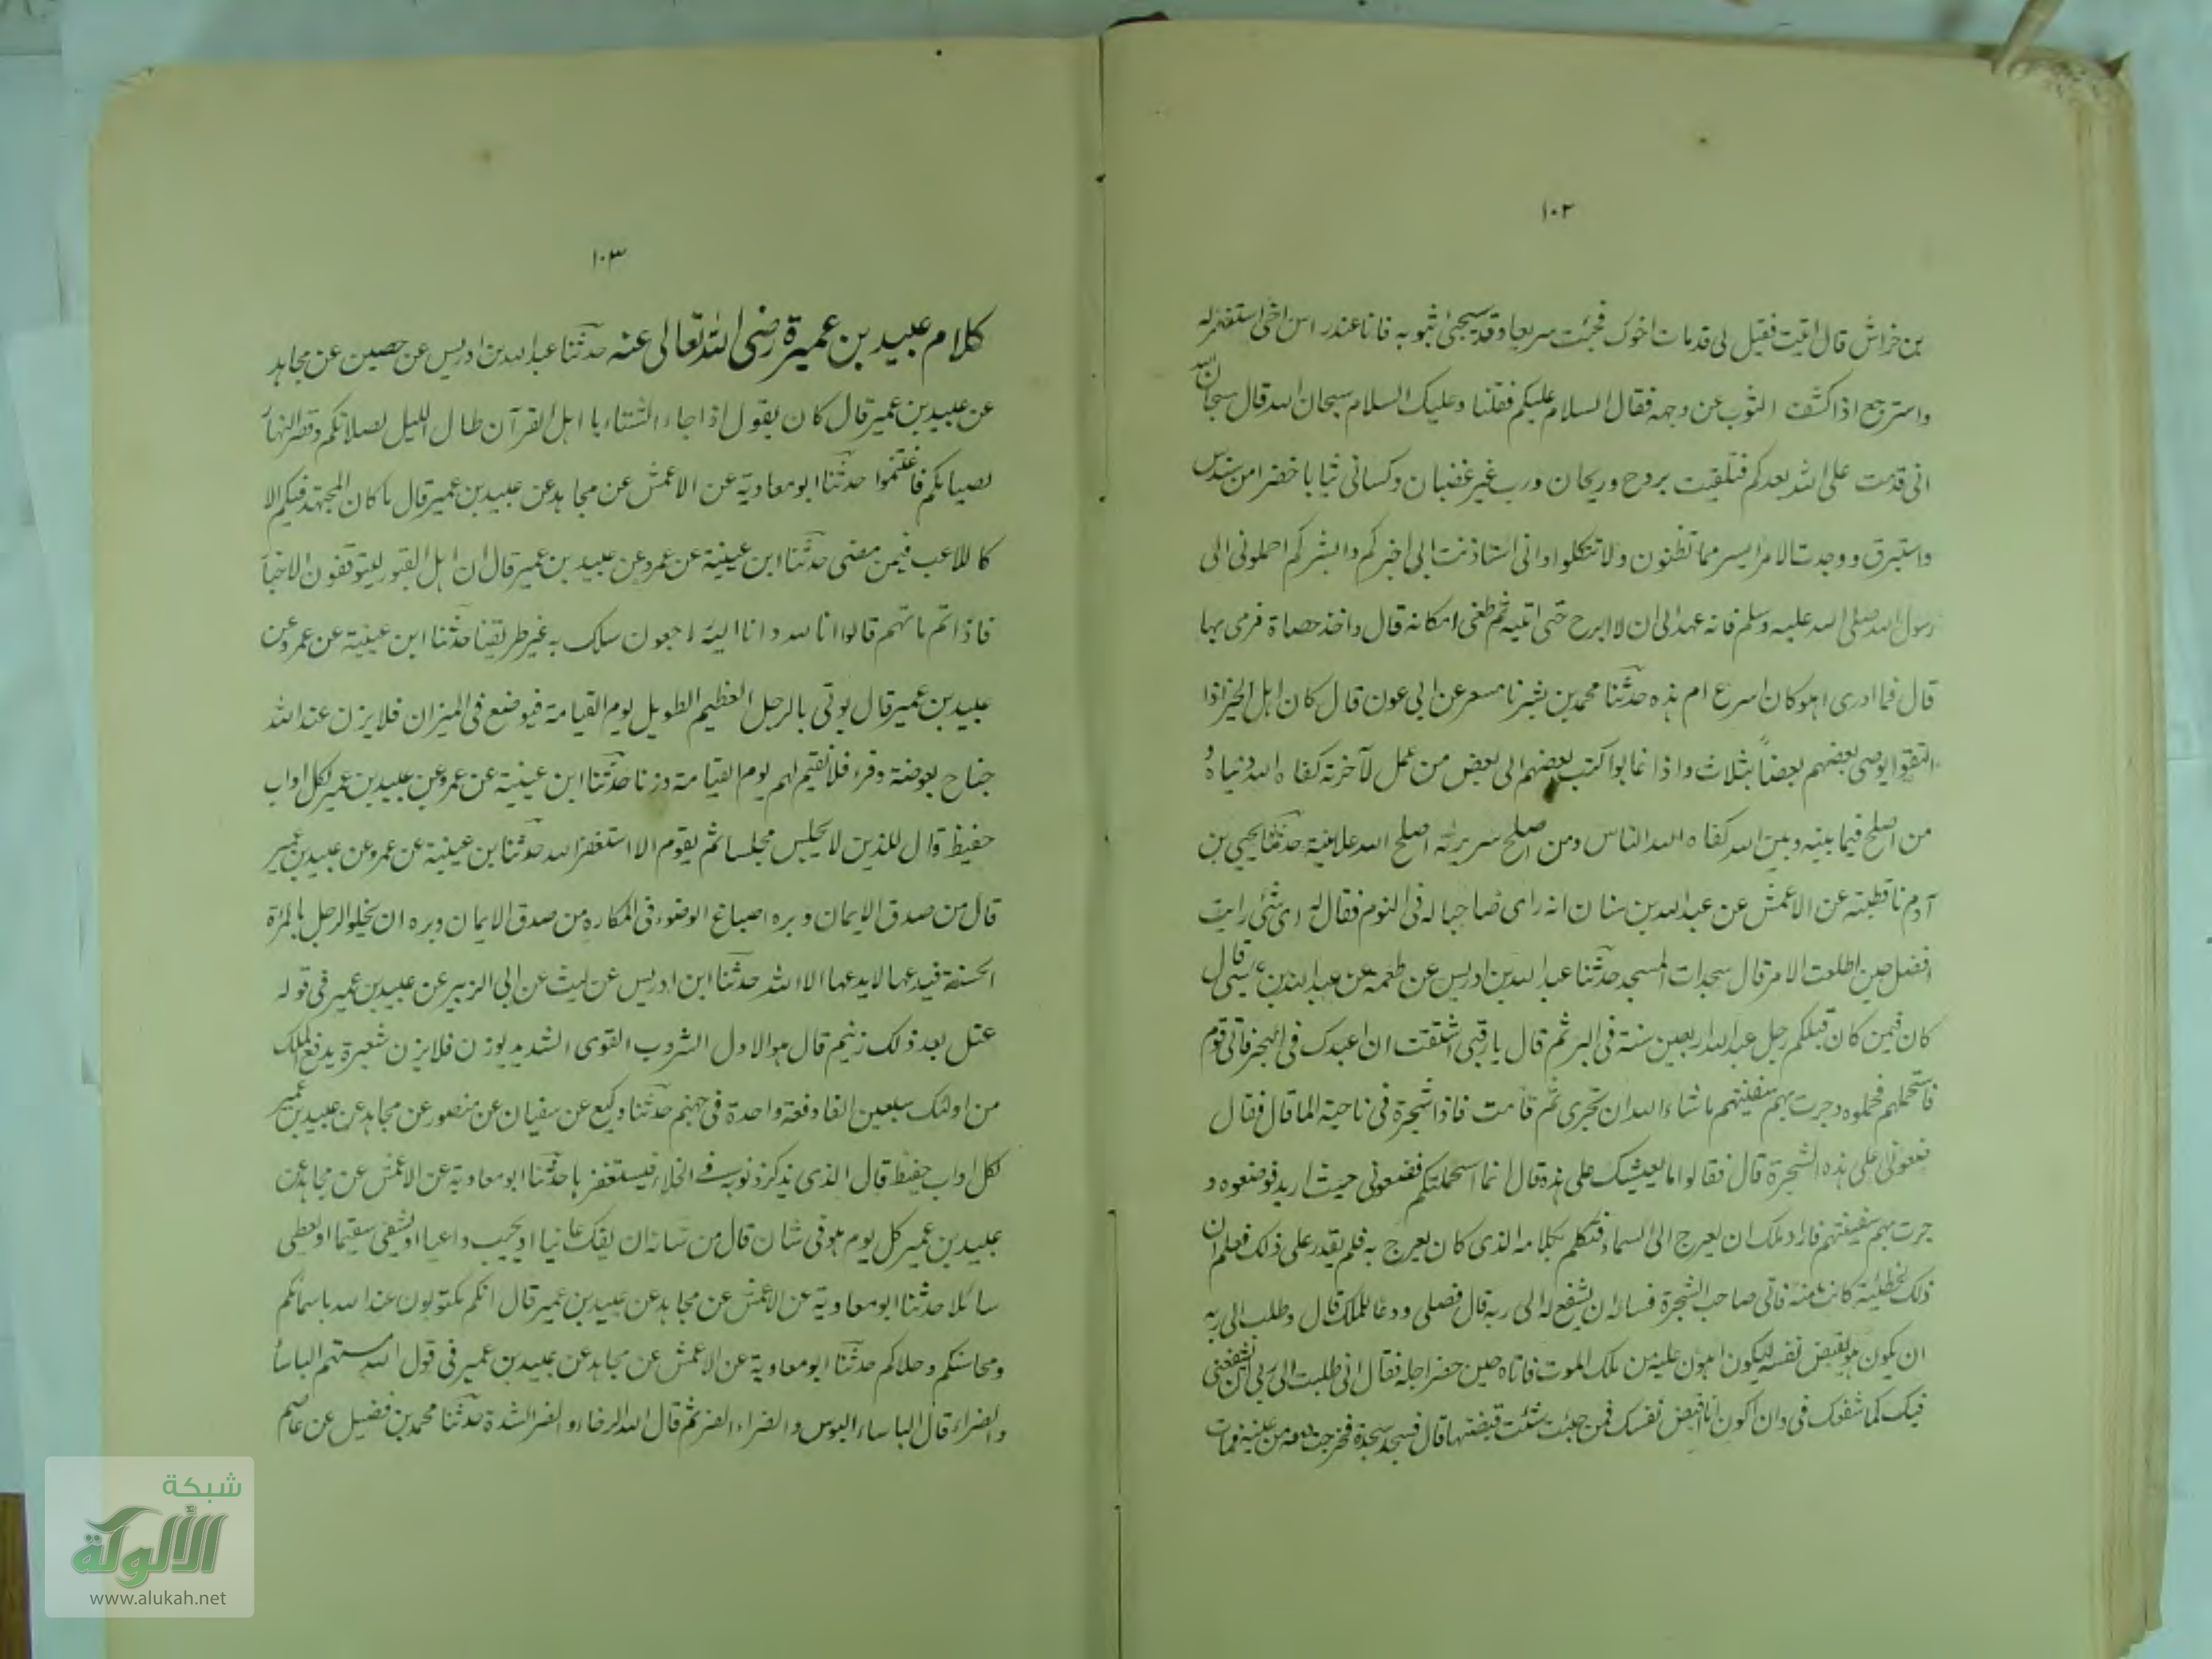 ١٠٢
بن خراش قال اتيت فقيل لى قد مات اخوك فجئت سريعا وقد سجى بثوبه فانا عند راس اخى استغفر له
واسترجع اذا كشف الثوب عن وجهه فقال السلام عليكم فقلنا وعليك السلام سبحان الله قال سبحان الله
انى قدمت على الله بعدكم فتلقيت بروح وريحان ورب غير غضبان وكسانى ثيابا خضرا من سندس
واستبرق ووجدت الامر ايسر مما تظنون ولا تتكلوا وانى استاذنت ربى اخبركم وابشركم احملونى الى
رسول الله صلى الله عليه وسلم فانه عهد الى ان لا ابرح حتى اتيه ثم طفى مكانه قال واخذ حصاة فرمى بها
قال فما ادرى اهو كان اسرع ام هذه حدثنا محمد بن بشر نا مسعر عن ابى عون قال كان اهل الخير اذا
التقوا يوصى بعضهم بعضاً بثلاث واذا غابوا كتب بعضهم الى بعض من عمل لآخرته كفاه الله دنياه و
من اصلح فيما بينه وبين الله كفاه الله الناس ومن اصلح سريرته اصلح الله علانيته حدثنا يحيى بن
آدم نا قطبة عن الاعمش عن عبد الله بن سنان انه راى صاحبا له فى النوم فقال له اى شئ رايت
افضل حين اطلعت الامر قال سجدات المسجد حدثنا عبد الله بن ادريس عن طعمة عن عبد الله بن عيسى قال
كان فيمن كان قبلكم رجل عبد الله اربعين سنة فى البر ثم قال يا رب قد اشتقت ان اعبدك فى البحر فاتى قوم
فاستحملهم فحملوه وجرت بهم سفينتهم ما شاء الله ان تجرى ثم قامت فاذا شجرة فى ناحية الما قال فقال
ضعونى على هذه الشجرة قال فقالوا ما يعيشك على هذه قال انما استحملتكم فضعونى حيث اريد فوضعوه و
جرت بهم سفينتهم فاراد ملك ان يعرج الى السماء فتكلم بكلامه الذى كان يعرج به فلم يقدر على ذلك فعلم ان
ذلك لخطيئة كانت منه فاتى صاحب الشجرة فساله ان يشفع له الى ربه قال فصلى ودعا للملك قال وطلب الى ربه
ان يكون هو يقبض نفسه ليكون اهون عليه من ملك الموت فاتاه حين حضر اجله فقال انى طلبت الى ربى ان يشفعنى
فيك كما شفعك فى وان اكون انا اقبض نفسك فمن حيث شئت قبضتها قال فسجد سجدة فخرجت دمعة من عينه فمات
١٠٣
كلام عبيد بن عميرة رضى الله تعالى عنه حدثنا عبد الله بن ادريس عن حصين عن مجاهد
عن عبيد بن عمير قال كان يقول اذا جاء الشتاء يا اهل القرآن طال الليل لصلاتكم وقصر النهار
لصيامكم فاغتنموا حدثنا ابو معاوية عن الاعمش عن مجاهد عن عبيد بن عمير قال ما كان المجتهد فيكم الا
كاللاعب فيمن مضى حدثنا ابن عيينة عن عمرو عن عبيد بن عمير قال ان اهل القبور ليتوقفون الاخبار
فاذا اتم ماتهم قالوا انا لله وانا اليه راجعون سلك به غير طريقنا حدثنا ابن عيينة عن عمرو عن
عبيد بن عمير قال يوتى بالرجل العظيم الطويل يوم القيامة فيوضع فى الميزان فلا يزن عند الله
جناح بعوضة وقرء فلا نقيم لهم يوم القيامة وزنا حدثنا ابن عيينة عن عمرو عن عبيد بن عمير لكل اواب
حفيظ قال للذين لا يجلس مجلسا ثم يقوم الا استغفر الله حدثنا ابن عيينة عن عمرو عن عبيد بن عمير
قال من صدق الايمان وبره اصباغ الوضوء فى المكاره من صدق الايمان وبره ان يخلو الرجل بالمرأة
الحسنة فيدعها لا يدعها الا الله حدثنا ابن ادريس عن ليث عن ابى الزبير عن عبيد بن عمير فى قوله
عتل بعد ذلك زنيم قال هو الاول الشروب القوى الشديد يوزن فلا يزن شعيرة يدفع الملك
من اولئك سبعين الفا دفعة واحدة فى جهنم حدثنا وكيع عن سفيان عن منصور عن مجاهد عن عبيد بن عمير
لكل اواب حفيظ قال الذى يذكر ذنوبه فى الخلاء فيستغفر ها حدثنا ابو معاوية عن الاعمش عن مجاهد عن
عبيد بن عمير كل يوم هو فى شان قال من شانه ان يفك عانيا او يجيب داعيا او يشفى سقيما او يعطى
سائلا حدثنا ابو معاوية عن الاعمش عن مجاهد عن عبيد بن عمير قال انكم مكتوبون عند الله باسمائكم
ومحاسنكم وحلاكم حدثنا ابو معاوية عن الاعمش عن مجاهد عن عبيد بن عمير فى قول الله مستهم الباساء
والضراء قال الباساء البوس والضراء الضر ثم قال الله الرخاء والضر الشدة حدثنا محمد بن فضيل عن عاصم
شبكة
الألوكة
www.alukah.net